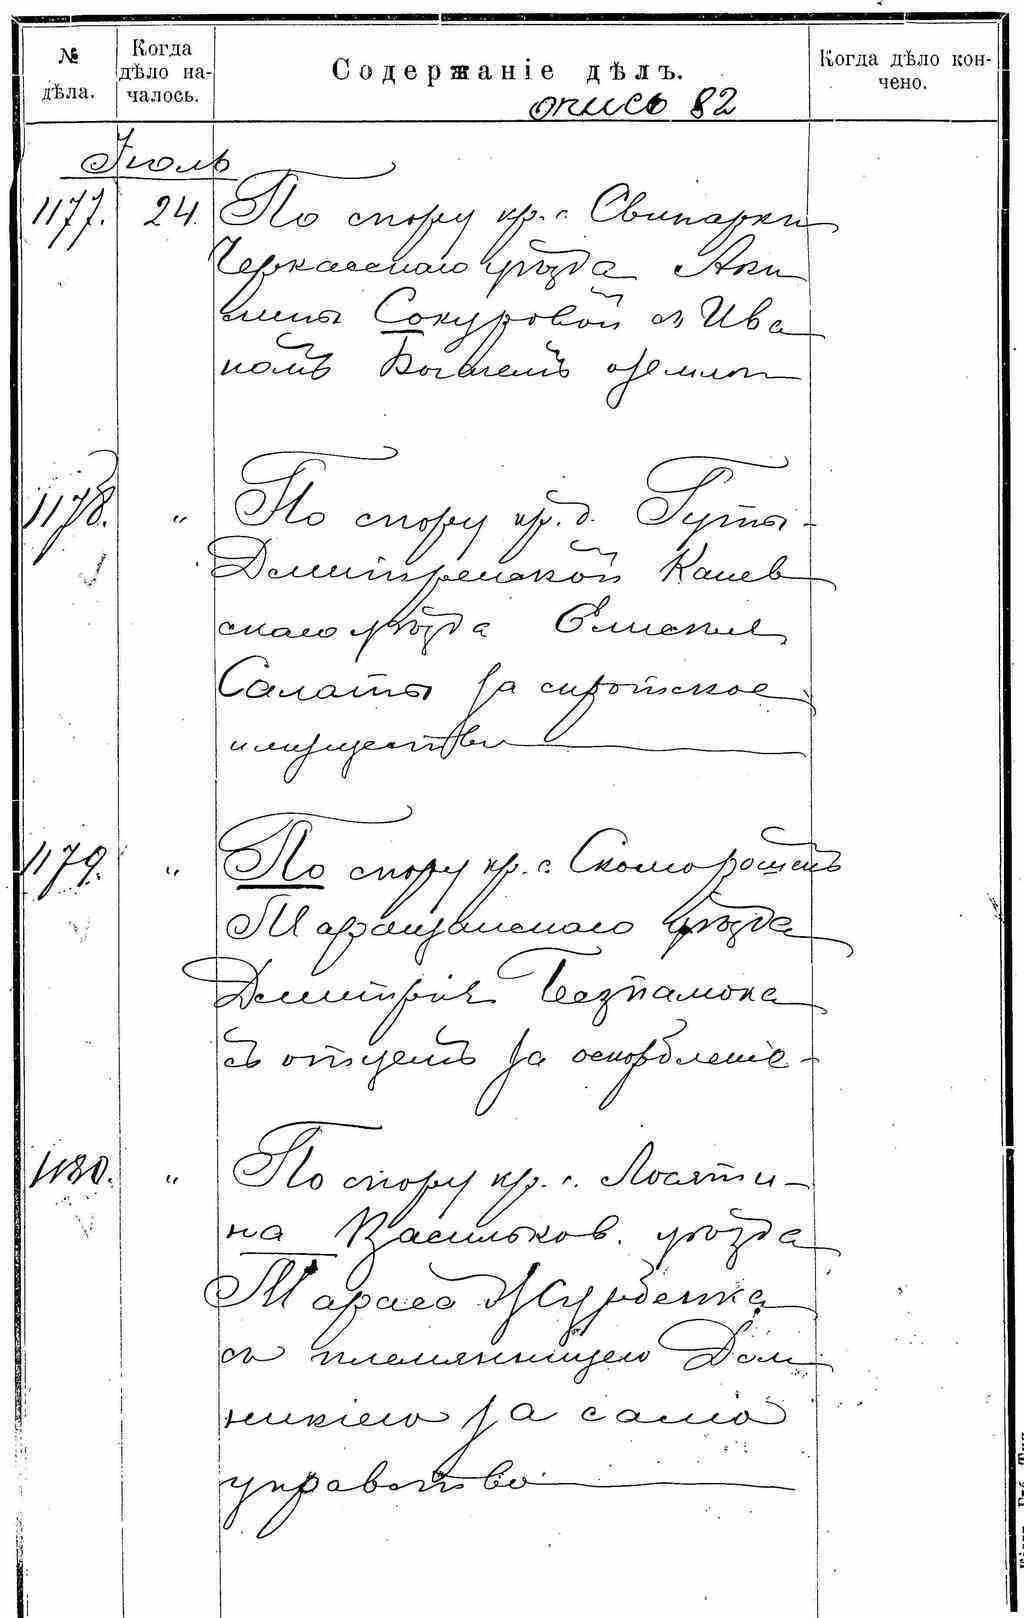 № дѣла.
Когда дѣло на-
чалось.
Содержаніе дѣлъ.
Когда дѣло кон-
чено.
опись 82
Іюль
1177. 24. По спору кр. с. Свинарки
Черкасскаго уѣзда Аки
лины Сокуровой съ Ива
номъ о землю
1178. " По спору кр. д. Гуты-
Дмитренской Канев
скаго уѣзда Елисея
Салаты за сиротское
имущество
1179. " По спору кр. с. Скоморошекъ
Таращанскаго уѣзда
Дмитрія
съ отцемъ за оскорбленіе-
1180. " По спору кр. с. Лосяти-
на Васильков. уѣзда
Тараса Журбенка
съ племянницею Дом
никіею за само
управство